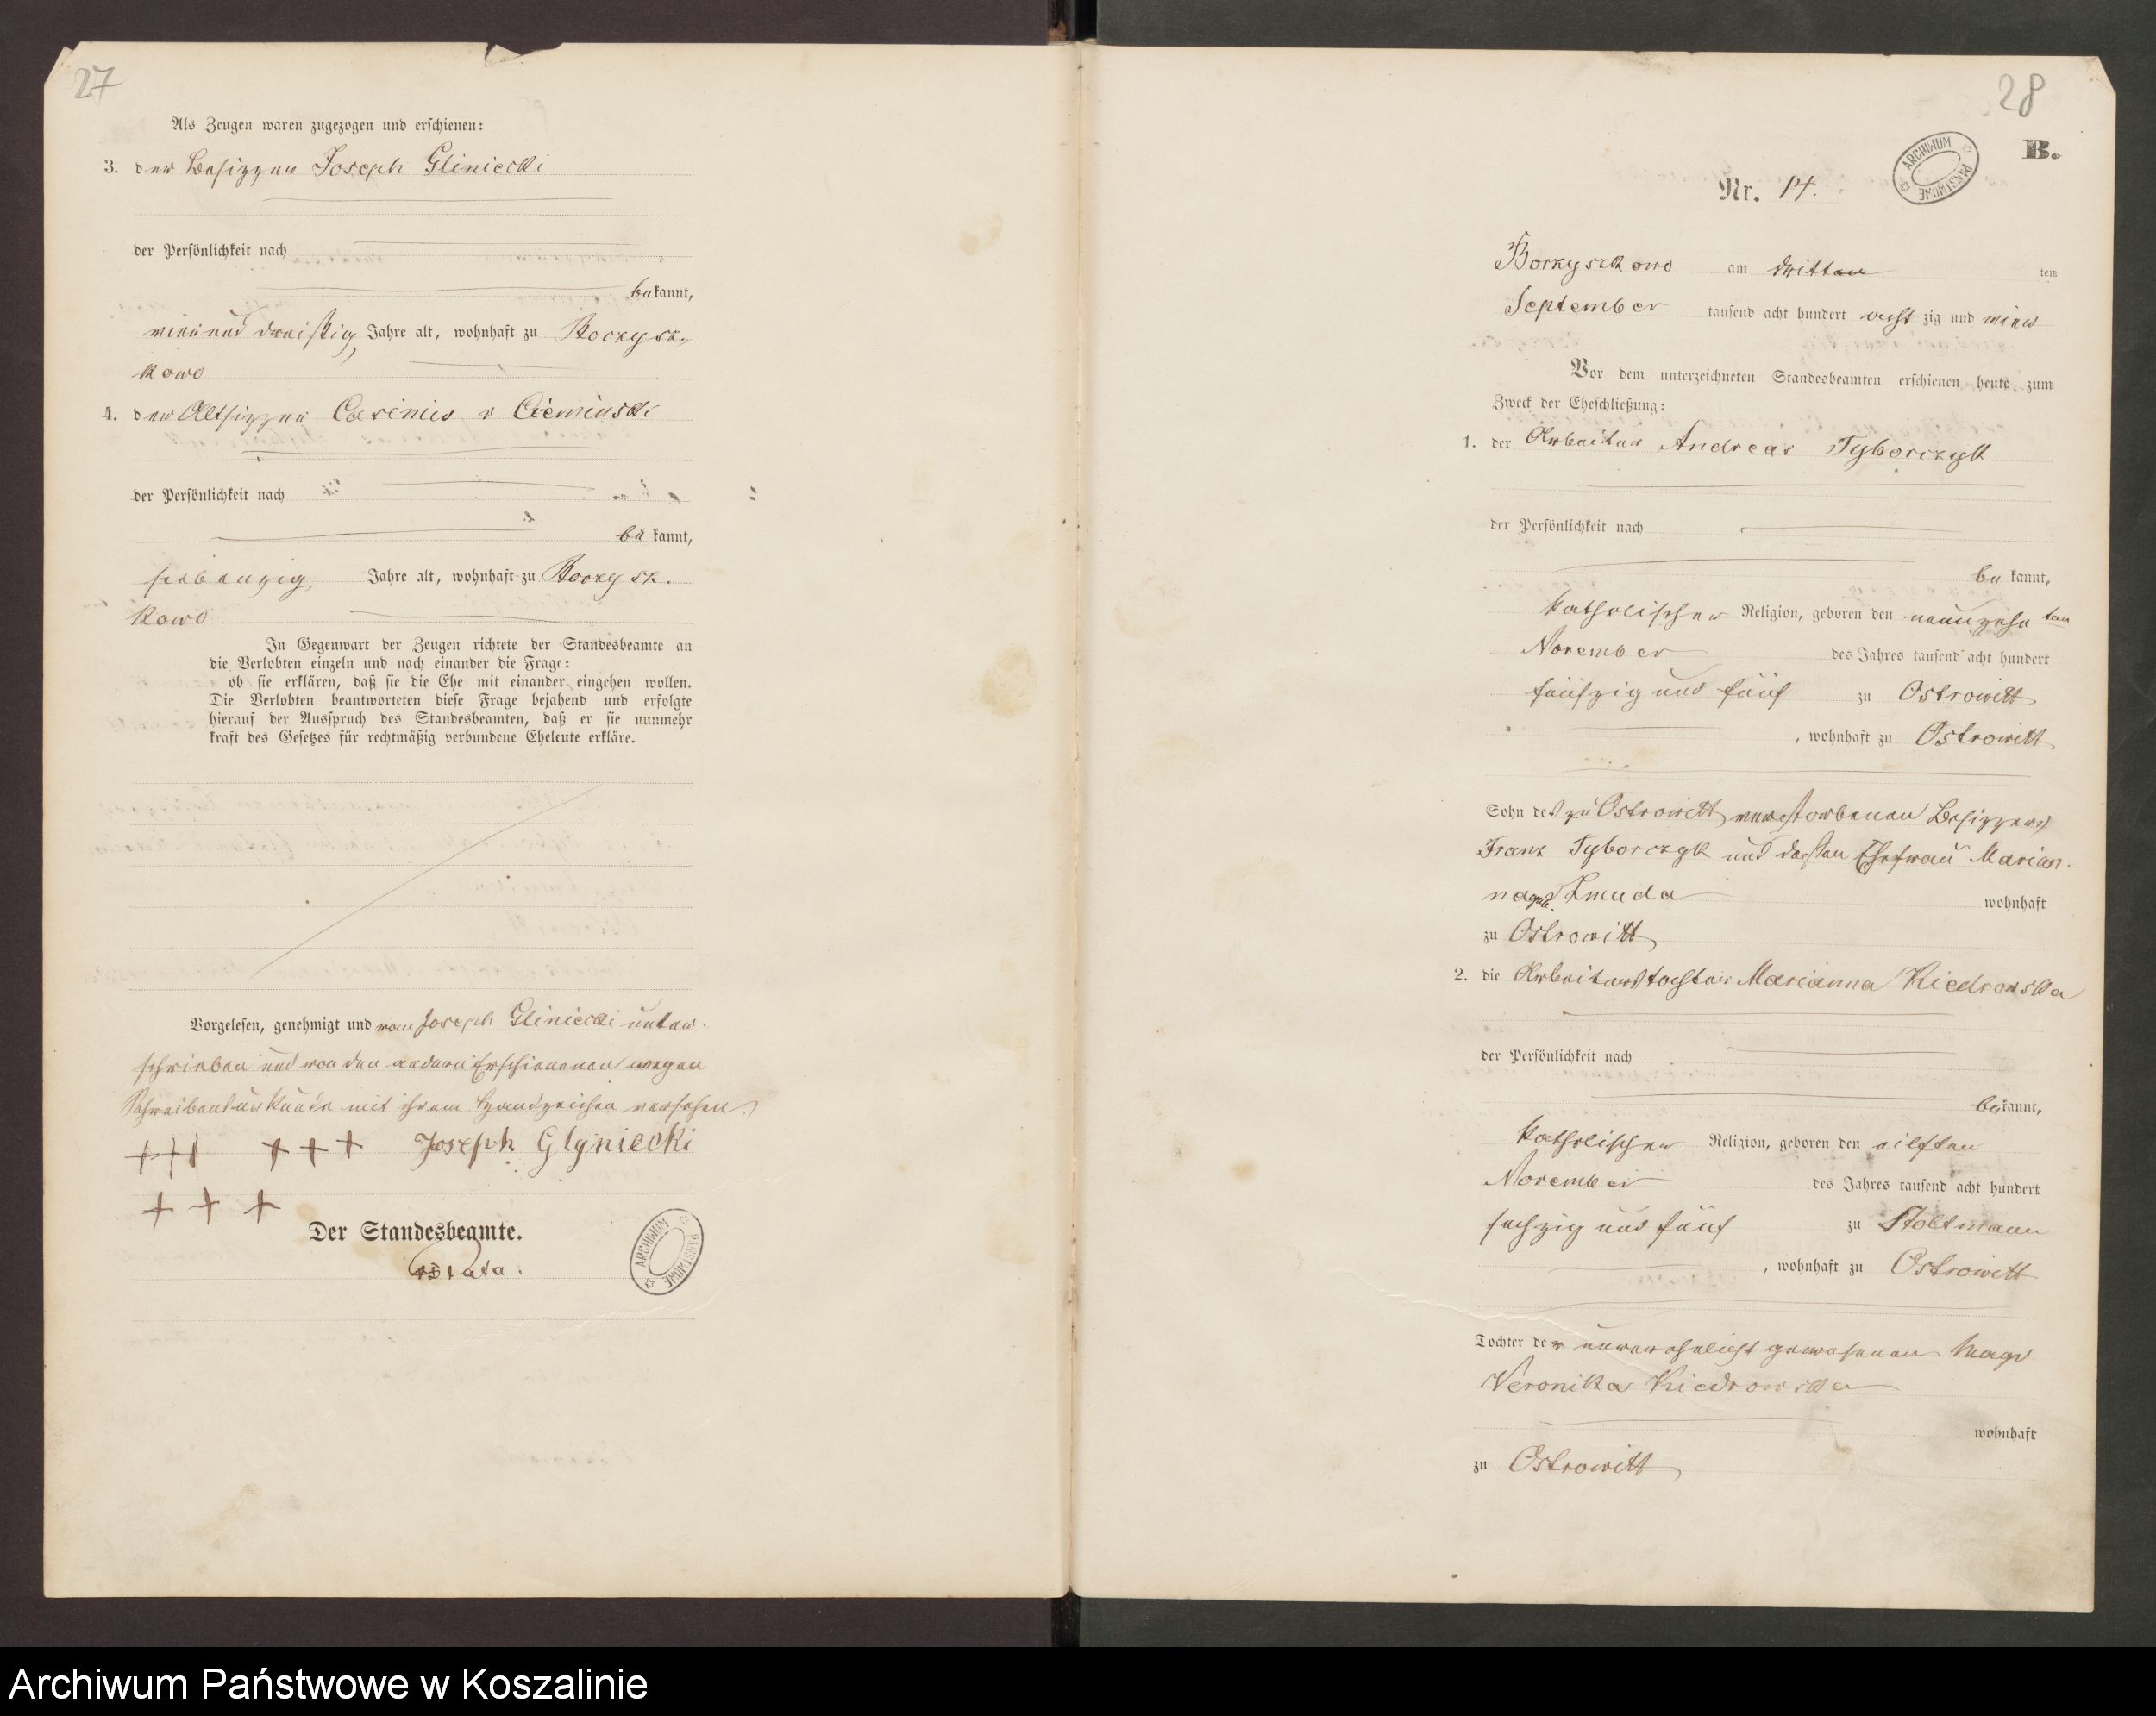 27
Als Zeugen waren zugezogen und erschienen:
3. der Besitzer Joseph Gliniecki
der Persönlichkeit nach
bekannt,
vierunddreißig Jahre alt, wohnhaft zu Borzysz-
kowo
4. der Altsitzer Casimir v Cieminski
der Persönlichkeit nach
be kannt,
siebenzig Jahre alt, wohnhaft zu Borzysz-
kowo
In Gegenwart der Zeugen richtete der Standesbeamte an
die Verlobten einzeln und nach einander die Frage:
ob sie erklären, daß sie die Ehe mit einander eingehen wollen.
Die Verlobten beantworteten diese Frage bejahend und erfolgte
hierauf der Ausspruch des Standesbeamten, daß er sie nunmehr
kraft des Gesetzes für rechtmäßig verbundene Eheleute erkläre.
Vorgelesen, genehmigt und von Joseph Gliniecki unter-
schrieben und von den andern Erschienenen wegen
Schreibensunkunde mit ihrem Handzeichen versehen.
+++ +++ Joseph Glyniecki
+++
Der Standesbeamte.
ARCHIWUM PAŃSTWOWE
28
ARCHIWUM PAŃSTWOWE
B.
Nr. 14.
Borzyszkowo am dritten tem
September tausend acht hundert acht zig und vier
Vor dem unterzeichneten Standesbeamten erschienen heute zum
Zweck der Eheschließung:
1. der Arbeiter Andreas Tyborczyk
der Persönlichkeit nach
be kannt,
katholischer Religion, geboren den neunzehn ten
November des Jahres tausend acht hundert
fünfzig und fünf zu Ostrowitt
, wohnhaft zu Ostrowitt
Sohn des zu Ostrowitt verstorbenen Besitzers
Franz Tyborczyk und dessen Ehefrau Marian-
na geb. Zmuda wohnhaft
zu Ostrowitt
2. die Arbeiterstochter Marianna Kiedrowska
der Persönlichkeit nach
bekannt,
katholischer Religion, geboren den eilften
November des Jahres tausend acht hundert
sechzig und fünf zu Stoltmann
, wohnhaft zu Ostrowitt
Tochter der unverehelicht gewesenen Magd
Veronika Kiedrowska
wohnhaft
zu Ostrowitt
Archiwum Państwowe w Koszalinie